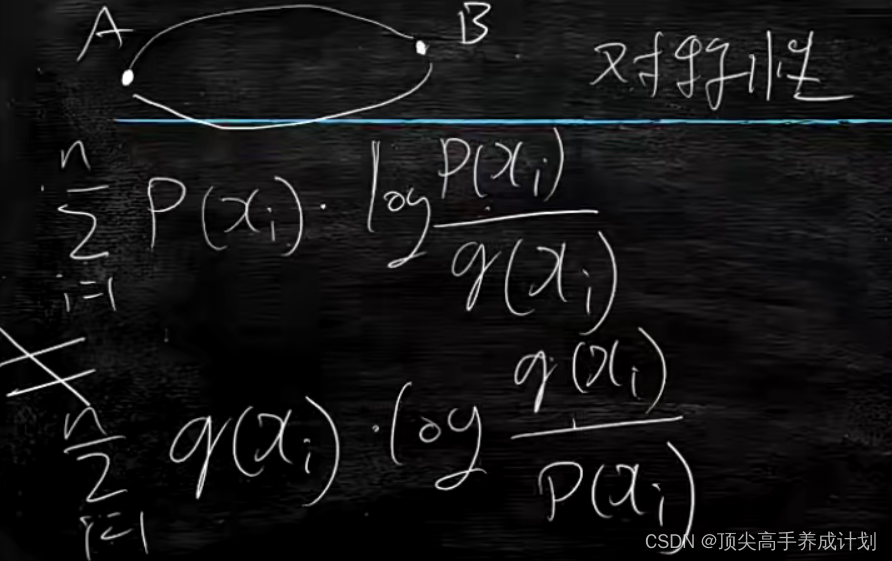 A B
对称性
n
∑ P(xᵢ)·log P(xᵢ)/q(xᵢ)
i=1
≠
n
∑ q(xᵢ)·log q(xᵢ)/P(xᵢ)
i=1
CSDN @顶尖高手养成计划